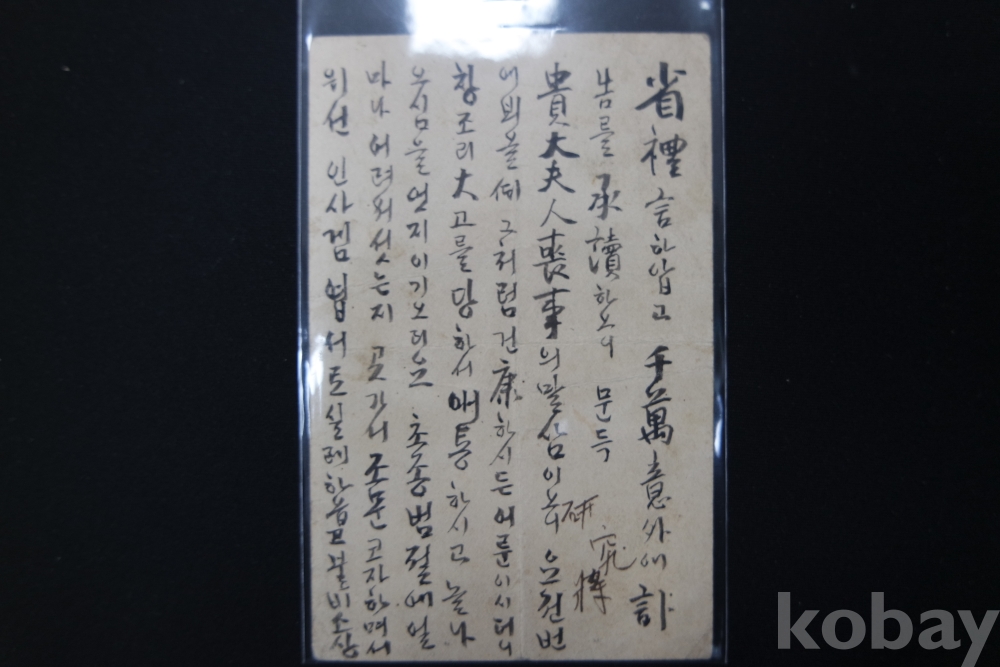 省禮言하압고 千萬意外에 訃
音를 承讀하오니 문득
貴大夫人喪事의 말삼이
研究樣
그저럼 건康하시든 어룬이시더니
창조리 大고를 당하서 애통하시고 놀나
우심을 엇지이기오며 초종범절에 얼
마나 어려워섯는지 곳가서 조문코자하면서
위선 인사겸 엽서로 실례하옵고 불비소상
kobay